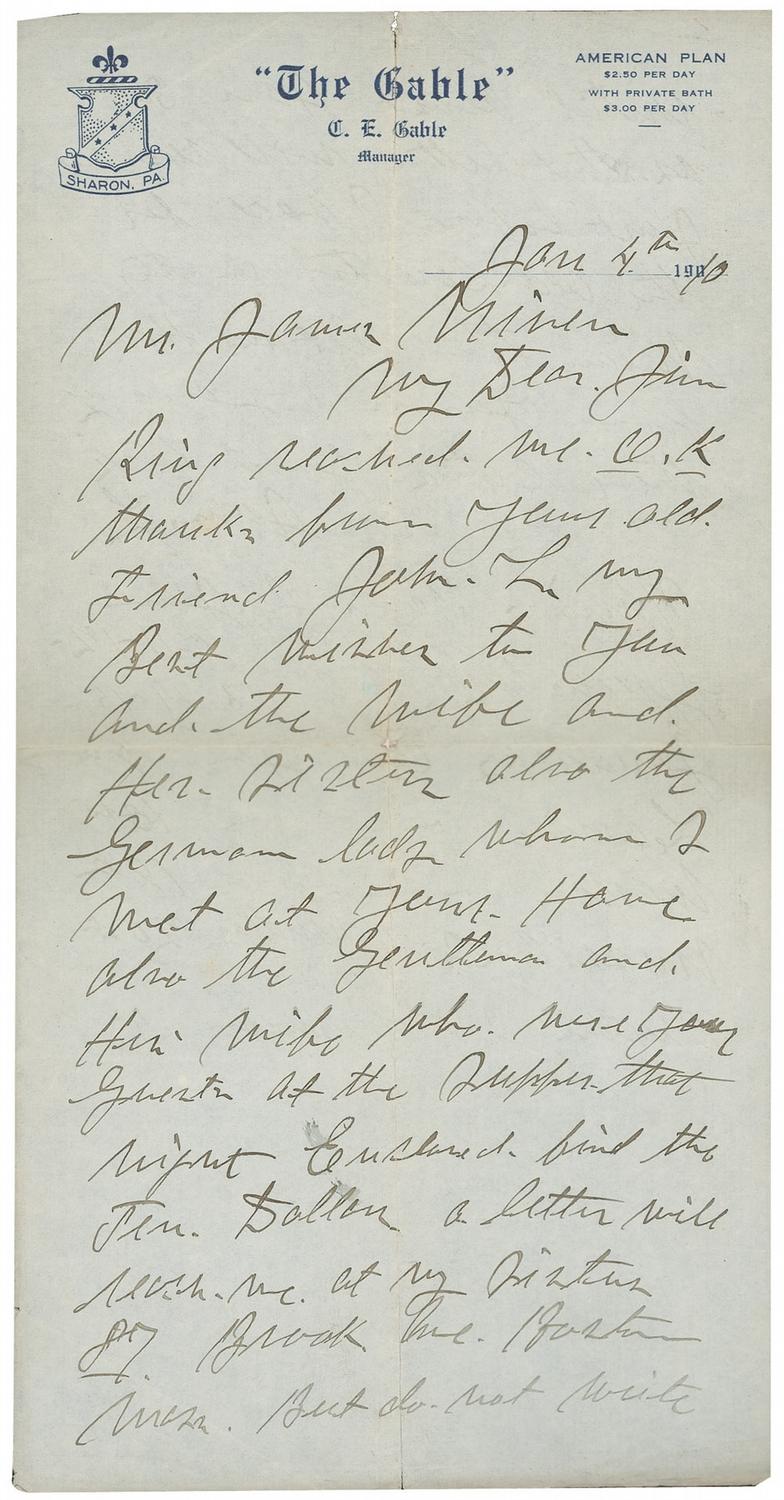 "The Gable"
C. E. Gable
Manager
AMERICAN PLAN
$2.50 PER DAY
WITH PRIVATE BATH
$3.00 PER DAY
SHARON, PA.
Jan 4th 1910
Mr. James Niven
My Dear. Jim
Ring reached. me. O.K
thanks from Your old.
Friend John. L. my
Best Wishes to You
and. the Wife and.
Her. Sisters also the
German lady whom I
Met at Your. Home
also the Gentleman and.
His Wife who. were Your
Guests at the Supper. that
night Enclosed. find the
Ten. Dollars a letter will
reach. me. at my Sisters
87 Brook. Ave. Boston
Mass. But do. not write